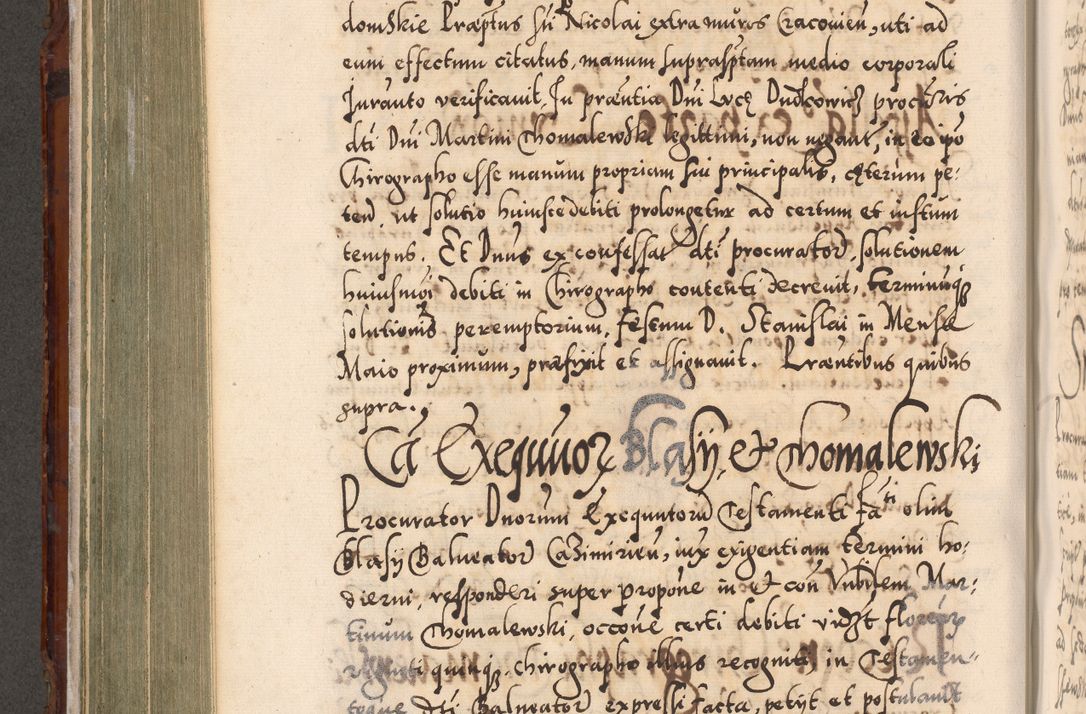 domskie Præptus Sti Nicolai extra muros Cracovien, uti ad
eum effectum citatus, manum suprasptam medio corporali
Juranto verificavit, In præntia Dni Lucę procuris
dti Dni Martini Chomalewski legittimi, non negant, in eo ipo
Chirographo esse manum propriam sui principalis, cęterum pe-
ten, ut solutio huiusce debiti prolongetur ad certum et iustum
tempus. Et Dnus ex confessat dti procurator, solutionem
huiusmoi debiti in Chirographo contenti decrevit, terminumq
solutionis peremptorium, festum D. Stanislai in Mense
Maio proximum, præfixit et assignavit. Præntibus quibus
supra.
Ca Exequuor Blasij et Chomalewski
Procurator Dnorum Exequutorum Testamenti Fati olim
Blasij Balneator Casimirien, iux exigentiam termini ho-
dierni, responderi super propone in et con Mar-
tinum Chomalewski, occone certi debiti vidzt floreor
viginti quinq, chirographo illius recogniti, in Testamen-
toque dti Balneator expressi facta, petijt et postulavit